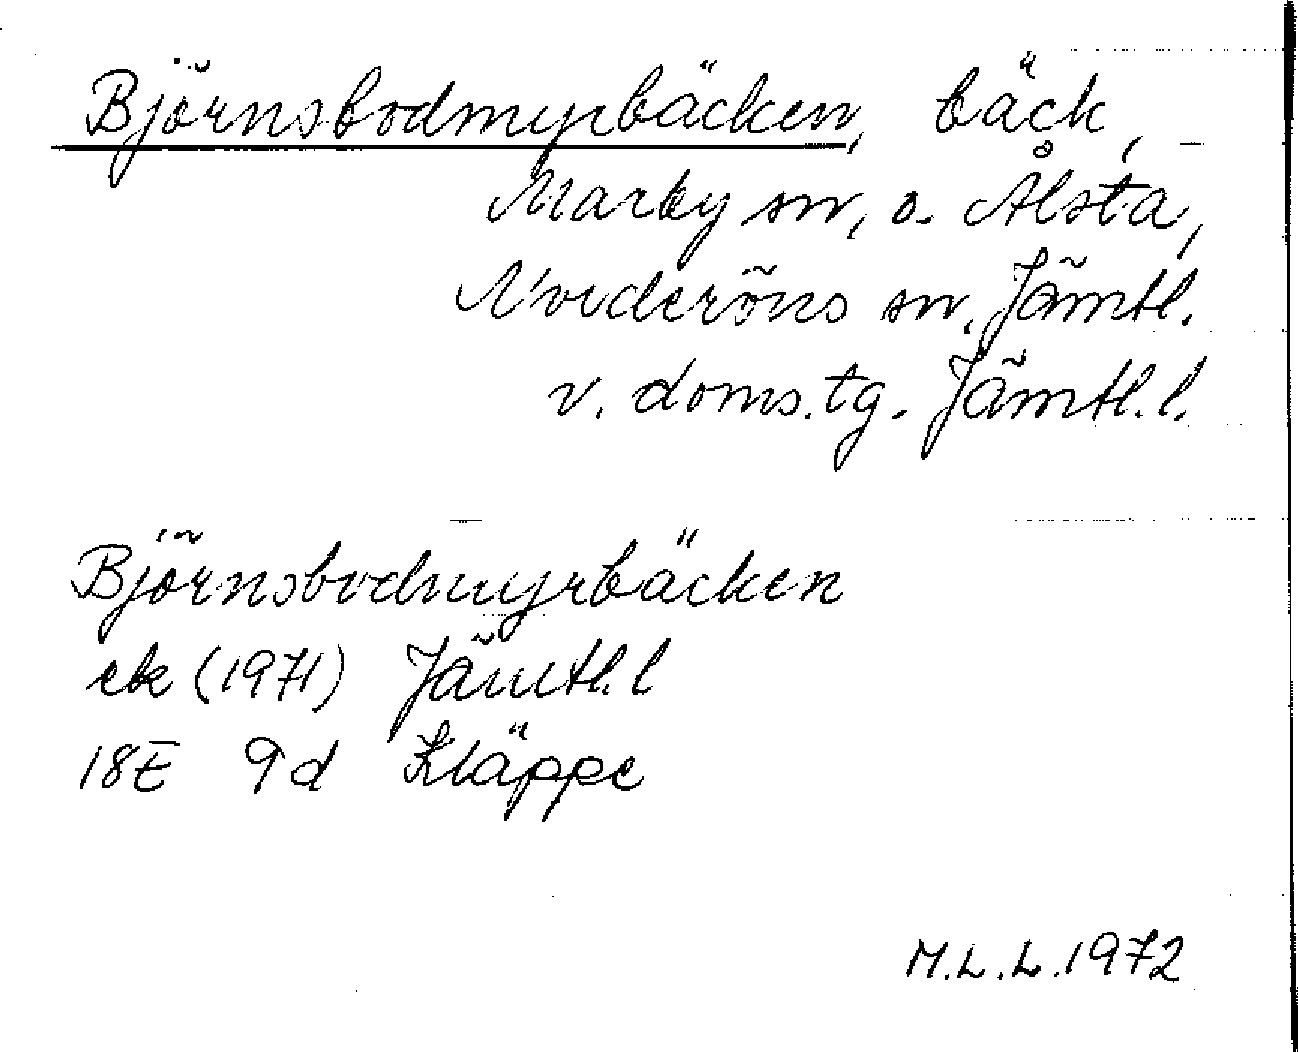 Björnsbodmyrbäcken, bäck,
Marby sn, o. Ålsta,
Norderöns sn, Jämtl.
v. doms.tg. Jämtl.l.
Björnsbodmyrbäcken
ek (1971) Jämtl.l
18E 9d Kläppe
M.L.L.1972